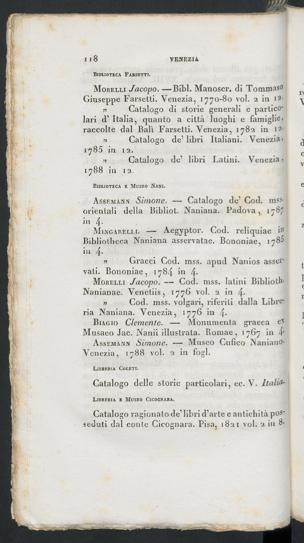 118 VENEZIA
Biblioteca Farsetti.
Morelli Jacopo. — Bibl. Manoscr. di Tommaso
Giuseppe Farsetti. Venezia, 1770-80 vol. 2 in 12.
„ Catalogo di storie generali e partico-
lari d' Italia, quanto a città luoghi e famiglie,
raccolte dal Balì Farsetti. Venezia, 1782 in 12.
„ Catalogo de' libri Italiani. Venezia,
1785 in 12.
„ Catalogo de' libri Latini. Venezia,
1788 in 12.
Biblioteca e Museo Nani.
Assemani Simone. — Catalogo de' Cod. mss.
orientali della Bibliot. Naniana. Padova, 1787
in 4.
Mingarelli. — Aegyptor. Cod. reliquiae in
Bibliotheca Naniana asservatae. Bononiae, 1785
in 4.
„ Graeci Cod. mss. apud Nanios asser-
vati. Bononiae, 1784 in 4.
Morelli Jacopo. — Cod. mss. latini Biblioth.
Nanianae. Venetiis, 1776 vol. 2 in 4.
„ Cod. mss. volgari, riferiti dalla Libre-
ria Naniana. Venezia, 1776 in 4.
Biagio Clemente. — Monumenta graeca ex
Musaeo Jac. Nanii illustrata. Romae, 1767 in 4.
Assemani Simone. — Museo Cufico Naniano.
Venezia, 1788 vol. 2 in fogl.
Libreria Coleti.
Catalogo delle storie particolari, ec. V. Italia.
Libreria e Museo Cicognara.
Catalogo ragionato de' libri d'arte e antichità pos-
seduti dal conte Cicognara. Pisa, 1821 vol. 2 in 8.